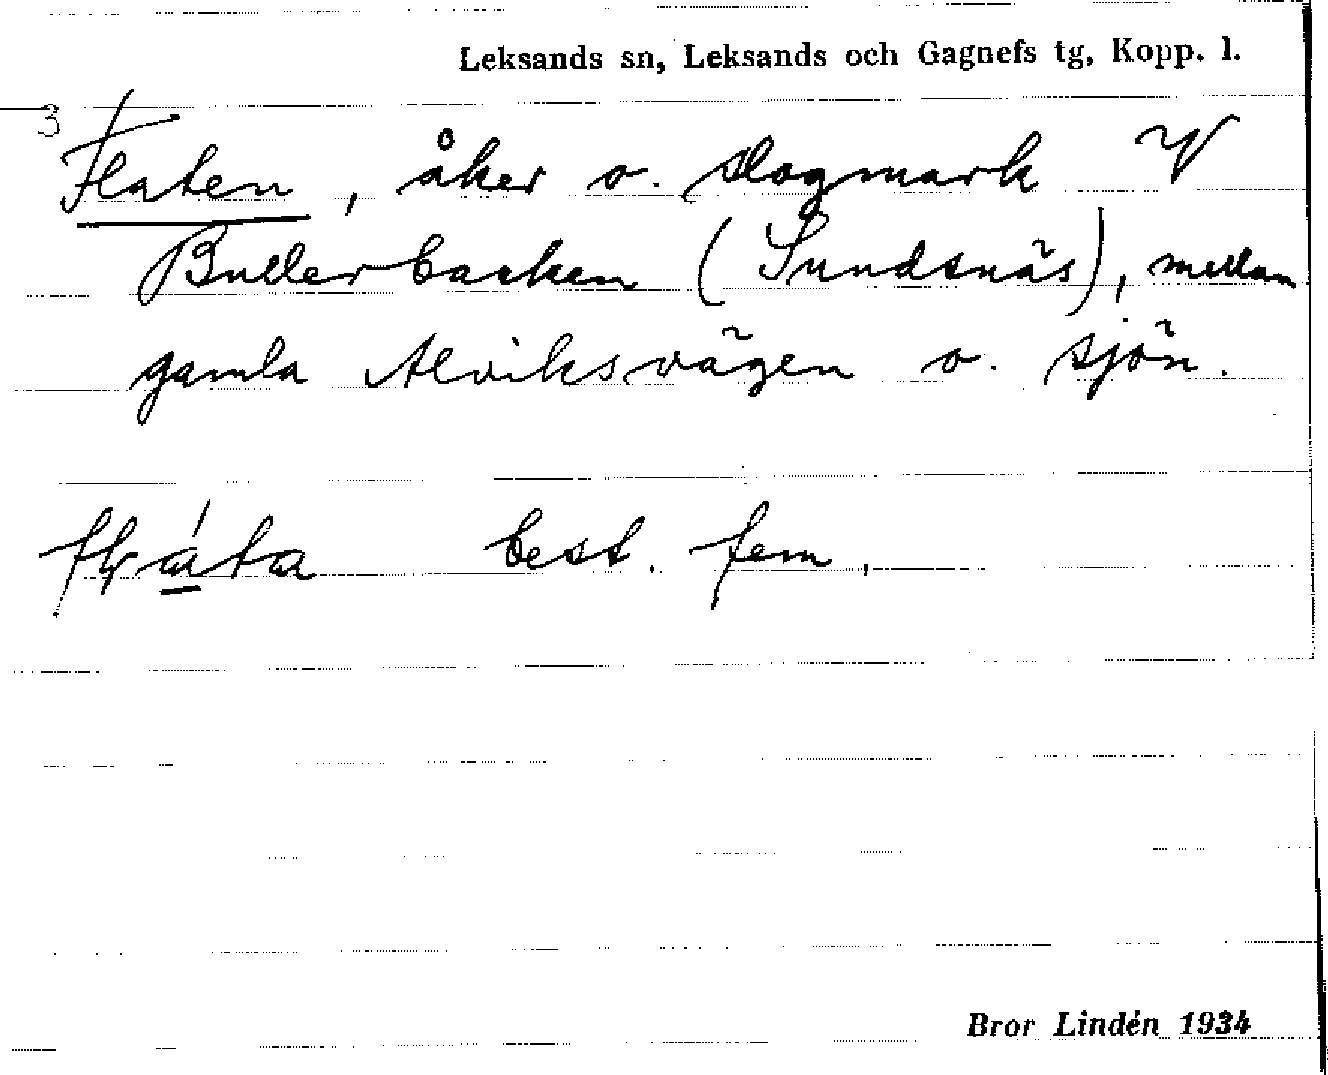 Leksands sn, Leksands och Gagnefs tg, Kopp. l.
3
Flaten, åker o. slogmark V
Bullerbacken (Sundsnäs), mellan
gamla Alviksvägen o. sjön.
best. fem.
Bror Lindén 1934